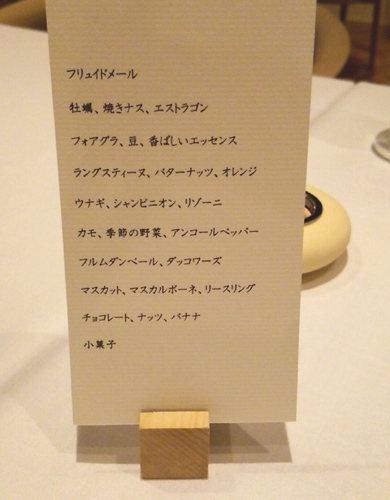 フリュイドメール
牡蠣、焼きナス、エストラゴン
フォアグラ、豆、香ばしいエッセンス
ラングスティーヌ、バターナッツ、オレンジ
ウナギ、シャンピニオン、リゾーニ
カモ、季節の野菜、アンコールペッパー
フルムダンベール、ダッコワーズ
マスカット、マスカルポーネ、リースリング
チョコレート、ナッツ、バナナ
小菓子